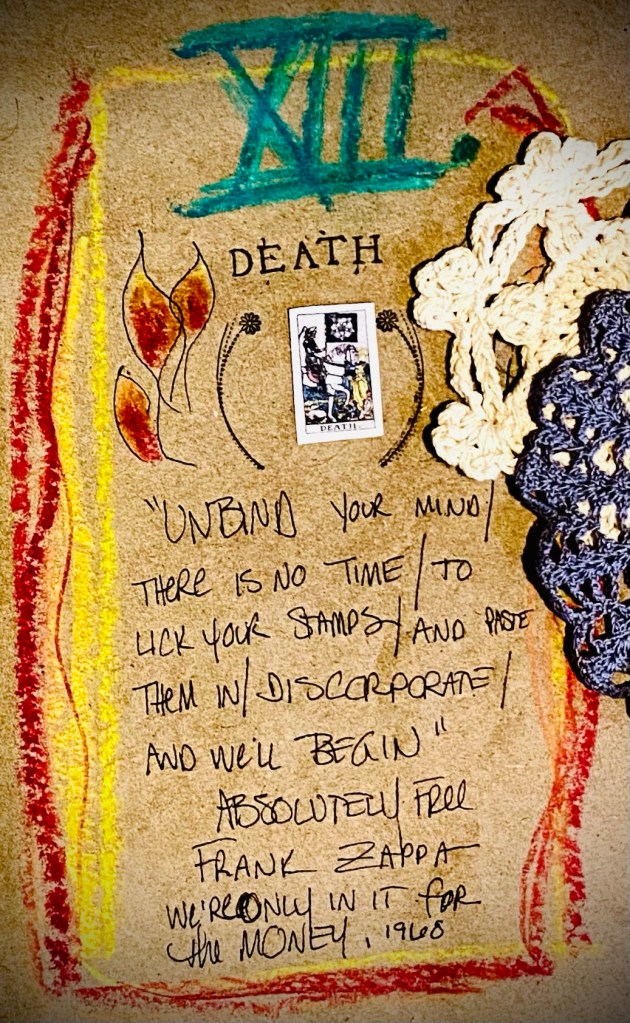 XIII.
DEATH
DEATH.
"UNBIND YOUR MIND/
THERE IS NO TIME/TO
LICK YOUR STAMPS/AND PASTE
THEM IN/DISCORPORATE/
AND WE'LL BEGIN"
ABSOLUTELY FREE
FRANK ZAPPA
WE'RE ONLY IN IT for
the MONEY, 1968